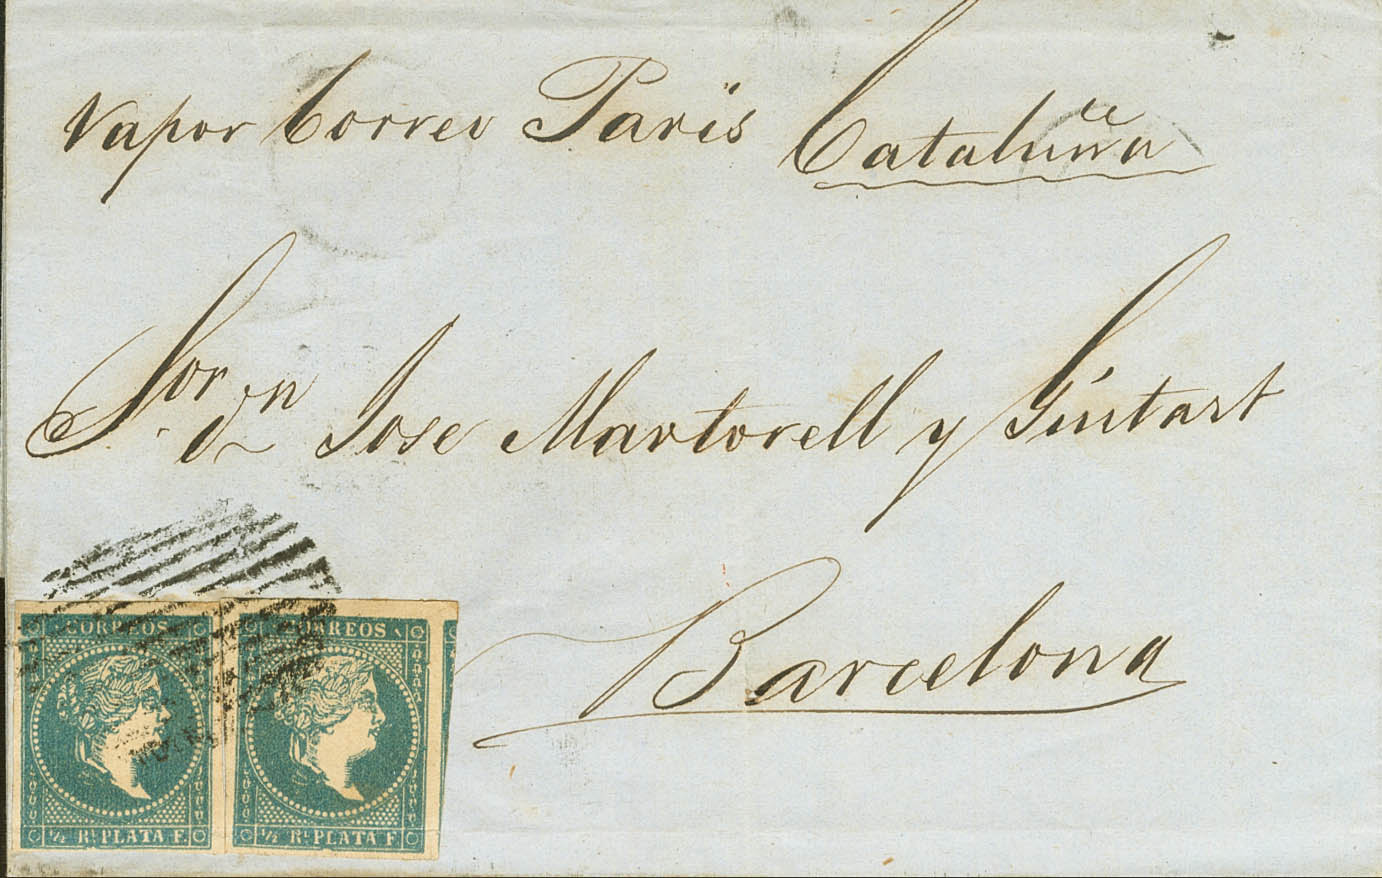 Vapor Correo París Cataluña
Sor. Dn Jose Martorell y Gintart
Barcelona
CORREOS CORREOS
1/2 Rl PLATA F. 1/2 Rl PLATA F.